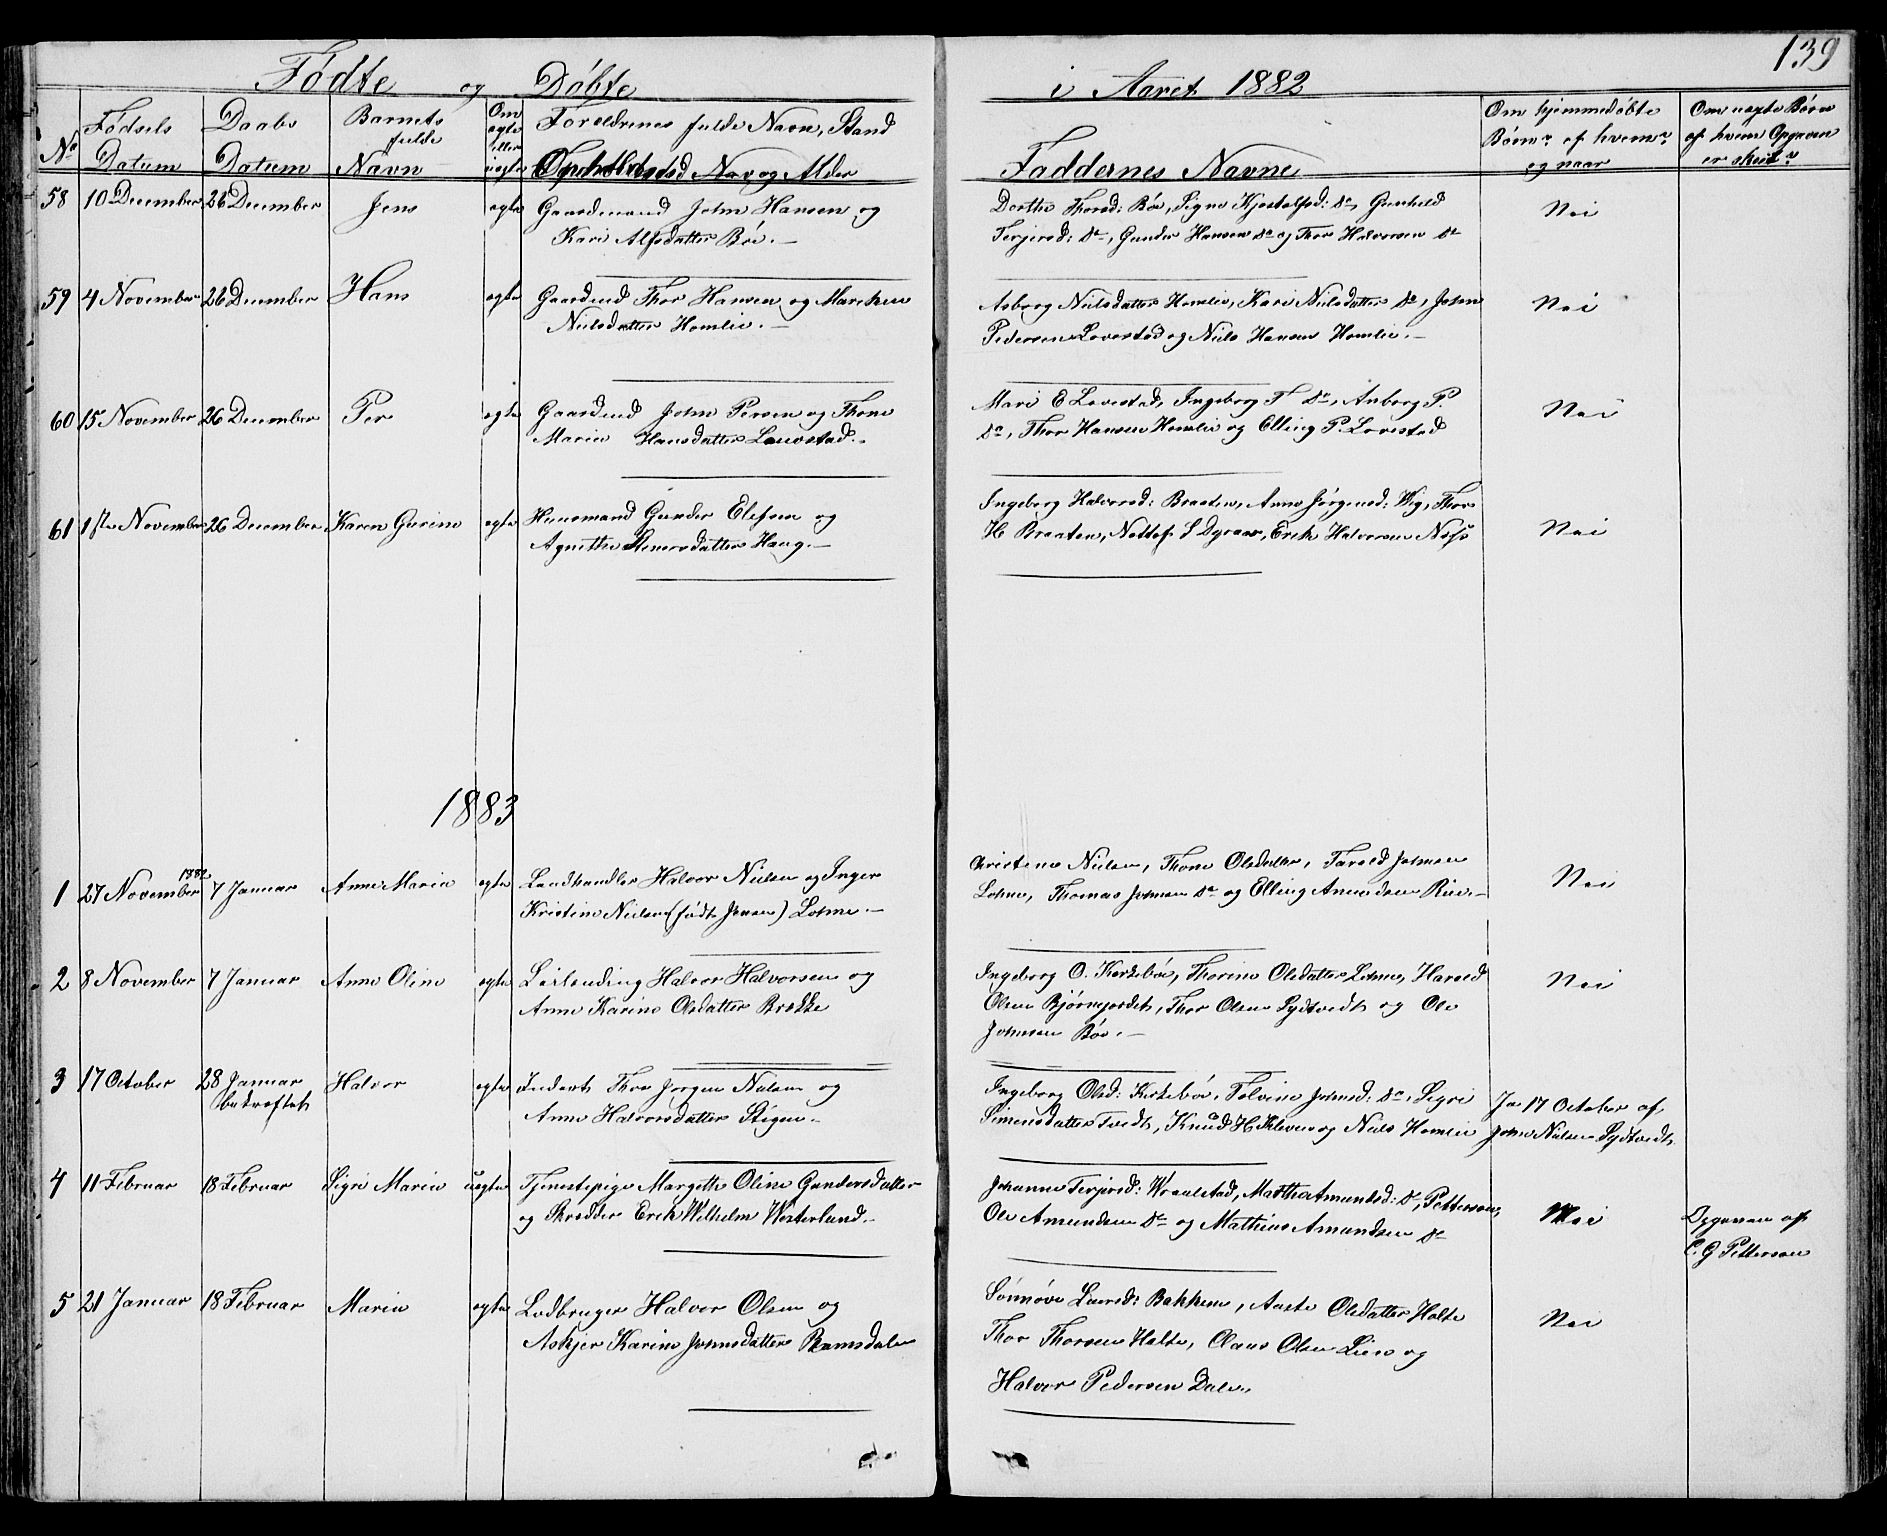 139
Fødte og Døbte i Aaret 1882
No
Fødsels Datum
Daabs Datum
Barnets fulde Navn
Om ægte eller uægte
Forældrenes fulde Navn, Stand
og Alder
Faddernes Navne
Om hjemmedøbte Børn? af hvem? og naar
Om uægte Børn af hvem Opgaven er skeet?
58 10 December 26 December Jens ægte Gaardmand John Hansen og
Kari Alfsdatter Bøe.—
Dorthe Thorsd: Bøe, Signe Kjestolfsd: Do, Gunhild
Terjersd: Do, Gunder Hansen Do og Thor Halvorsen Do
Nei
59 4 November 26 December Hans ægte Gaardmd Thor Hansen og Marthen
Nielsdatter Homlie.—
Asborg Nielsdatter Homlie, Kari Nielsdatter Do, John
Pedersen Lovestad og Niels Hansen Homlie.—
Nei
60 15 November 26 December Per ægte Gaardmd John Persen og Thone
Marie Hansdatter Lauvstad.
Mari E Lovestad, Ingeborg T Do, Anborg P.
Do, Thor Hansen Homlie og Elling P. Lovestad
Nei
61 1ste November 26 December Karen Gurine ægte Huusmand Gunder Elefsen og
Agnethe Haug.—
Ingeborg Halvorsd: Braaten, Anne Jørgensd: Wig, Thor
H Braaten, S Erik Halvorsen
Nei
1883
1 27 November 1882 7 Januar Anne Maria ægte Landhandler Halvor Nielsen og Inger
Kristine Nielsen (født Jensen) Lohne.—
Christene Nielsen, Thone Olsdatter, Tarald Johnsen
Lohne, Thomas Johnsen Do og Elling Amundsen
Nei
2 8 November 7 Januar Anne Oline ægte Halvor Halvorsen og
Anne Karine Olsdatter Brekke
Ingeborg O. Kirkebøe, Thorine Olsdatter Lohne, Harald
Olsen Bjørnejordet, Thor Olsen Sydtvedt og Ole
Johnsen Bøe.—
Nei
3 17 October 28 Januar Halvor ægte Inderst Thor Jørgen Nielsen og
bekræftet
Anne Halvorsdatter Stigen.
Ingeborg Olsd: Kirkebøe, Tolvine Johnsd: Do, Sigri
Simensdatter Tvedt, Knud H Kleven og Niels Homlie
Ja 17 October af
John Nielsen Sydtvedt
4 11 Februar 18 Februar Sigri Marie uægte Tjenestepige Margethe Oline Gundersdatter
og Skrædder Erik Wilhelm Westerlund.
Johanne Terjersd: Wraalstad, Martha Amundsd: Do, Pettersson,
Ole Amundsen Do og Mathias Amundsen Do
Nei
Opgaven af
C. G Pettersson
5 21 Januar 18 Februar Marie ægte Lodbruger Halvor Olsen og
Askjer Karine Johnsdatter Ramsdalen
Sønnøve Larsd: Bakken, Aaste Olsdatter Holte
Thor Thorsen Holte, Claus Olsen Lien og
Halvor Pedersen Dale.
Nei